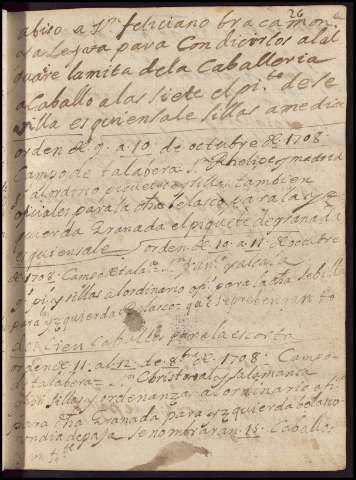 26
abiso a Dn feliciano bracamon
para Condicirlos al al
la mita de la Caballeria
a Caballo a las siete el pi.te de se
villa es quien sale sillas a media
orden de 9. a 10. de octubre de 1708.
Campo de talabera Sn Phelipe y madrid
al ordinario piquetes y sillas tambien
oficiales para la dha belasco para la yz
quierda Granada el piquete de granada
es quien sale orden de 10. a 11. de octubre
de 1708. Campo de tala.a Sn y alcala
pi. y sillas a lo ordinario ofi. para la dha sebilla
para la yzquierda belasco que se prebengan to
dos Cien Caballos para la escorta
orden de 11. al 12. de 8bre de 1708. Campo
de talabera Sn Christobal y Salamanca
sillas y ordenanza a lo ordinario ofi.
para dha Granada para yzquierda belasco
dia de paja se nombraran 15. Caballos